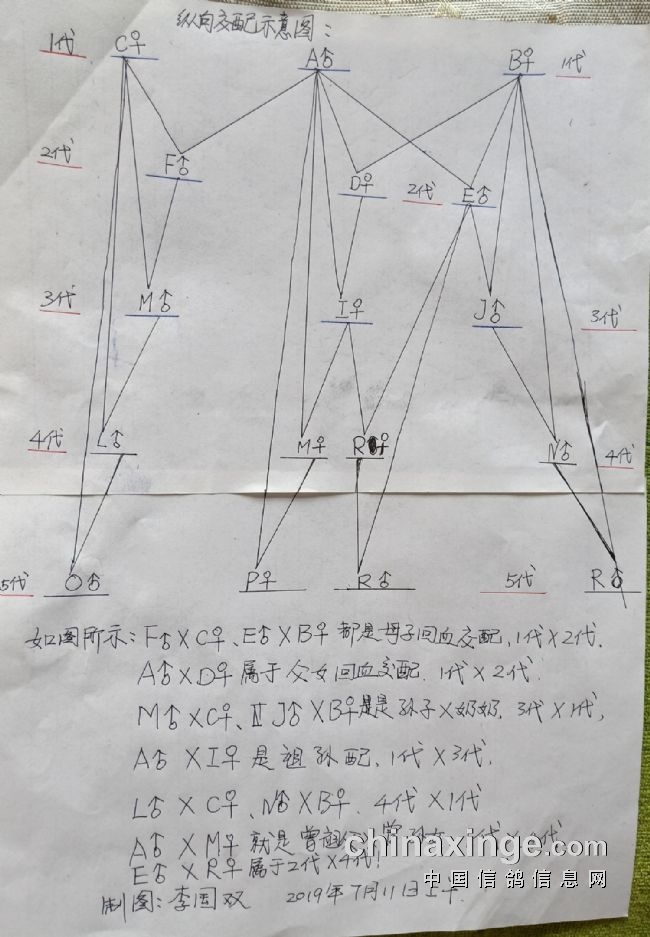 纵向交配示意图:
1代 C♀ A♂ B♀ 1代
2代 F♂ D♀ 2代 E♂
3代 M♂ I♀ J♂ 3代
4代 L♂ M♀ R♀ N♂ 4代
5代 O♂ P♀ R♂ 5代 R♂
如图所示:F♂×C♀、E♂×B♀都是母子回血交配,1代×2代.
A♂×D♀属于父女回血交配.1代×2代.
M♂×C♀、J♂×B♀是是孙子×奶奶.3代×1代,
A♂×I♀是祖孙配、1代×3代.
L♂×C♀、N♂×B♀.4代×1代
A♂×M♀就是曾祖 曾孙女 代
E♂×R♀属于2代×4代!
制图:李国双 2019年7月11日上午.
chinaxinge.com
中国信鸽信息网